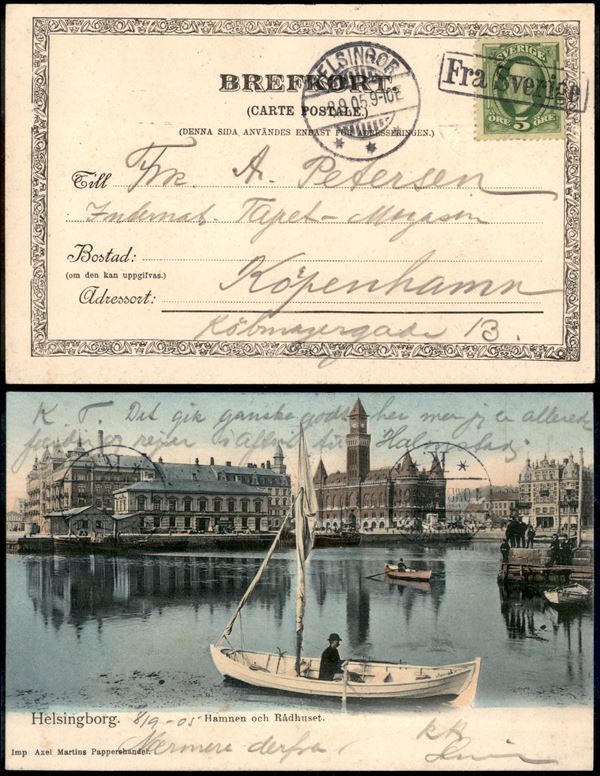 BREFKORT
(CARTE POSTALE.)
(DENNA SIDA ANVÄNDES ENDAST FÖR ADRESSERINGEN.)
HELSINGØR
8.9.05.9-10E
Fra Sverige
SVERIGE
ÖRE 5 ÖRE
Till Frk. A. Petersen
Internat. Tapet-Magasin
Bostad:
(om den kan uppgifvas.)
Adressort: Köpenhamn
Købmagergade 13.
K T Det gik ganske godt her men jeg er allerede
rejser i aften til Halmstad
Helsingborg. 8/9-05 Hamnen och Rådhuset.
Nærmere derfra
Imp Axel Martins Pappershandel.